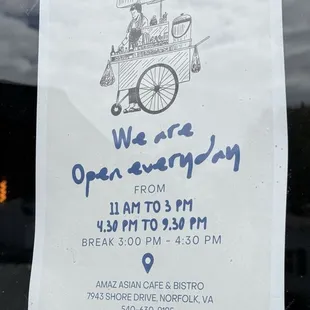 We are
Open everyday
FROM
11 AM TO 3 PM
4.30 PM TO 9.30 PM
BREAK 3:00 PM - 4:30 PM
AMAZ ASIAN CAFE & BISTRO
7943 SHORE DRIVE, NORFOLK, VA